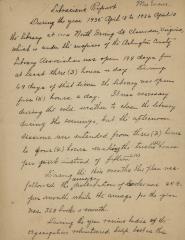 Librarian's Report
During the year 1935 April 1st to 1936 April 1st
the library at 1100 North Irving St. Clarendon, Virginia
which is under the auspices of the Arlington County
Library Association was open 194 days for
at least three (3) hours a day. During
69 days of that time the library was open
five (5) hours a day. It was necessary
during the cold weather to close the library
during the evenings, but the afternoon
sessions were extended from three (3) hours
to four (4) hours making the twelve
per week instead of fifteen
During the 1935 months the plan was
followed the circulation of volumes
per month while the average for the year
was 768 books a month.
During the year various ladies of the
organization volunteered help back in the